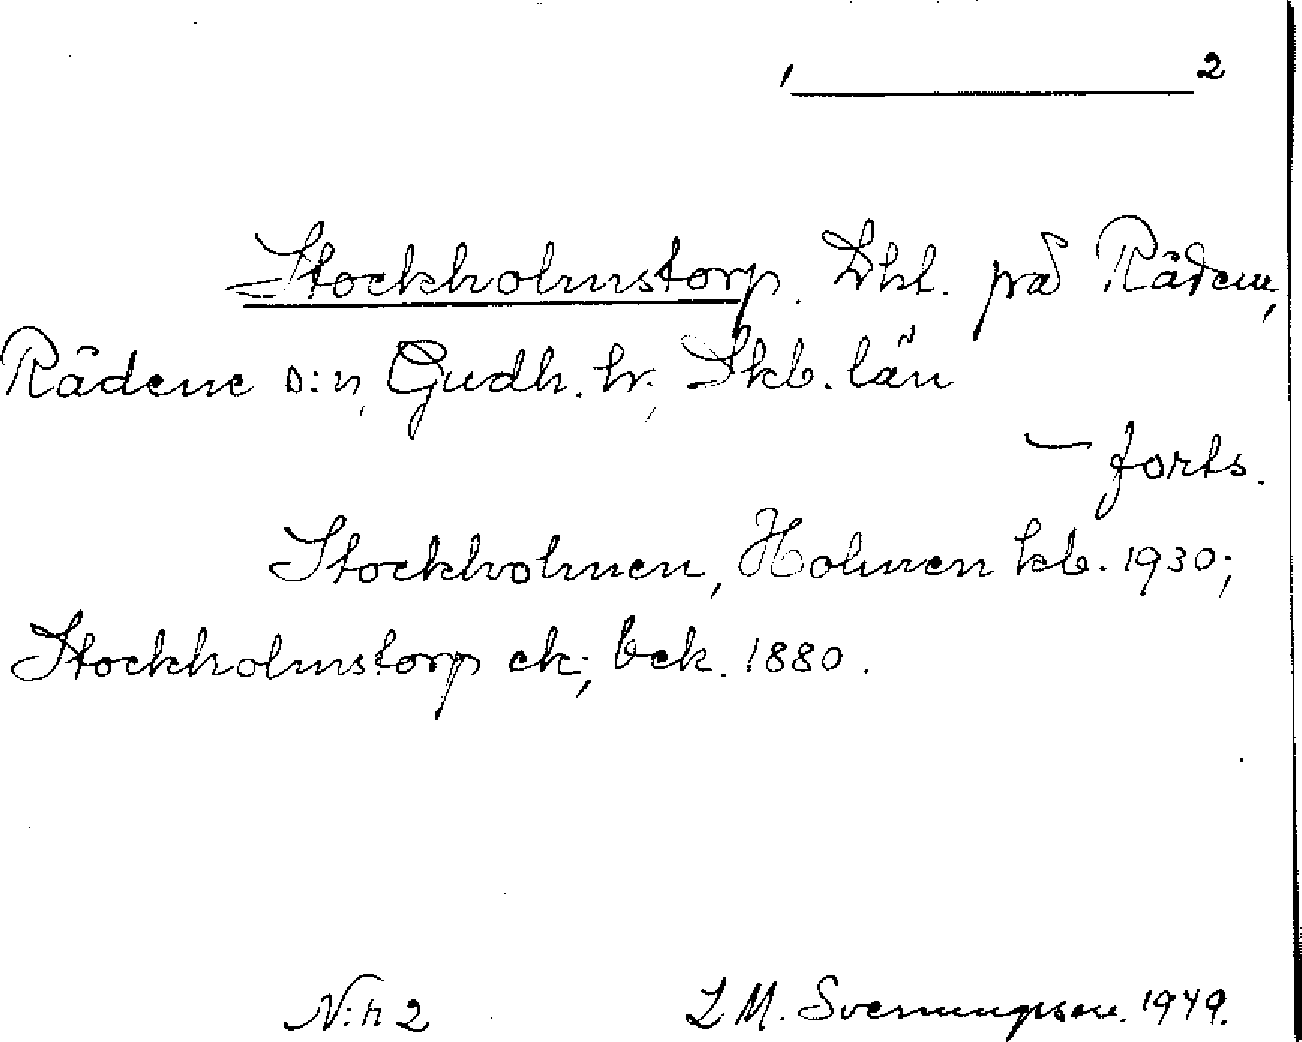 1 2
Stockholmstorp. Lht. på Råden,
Rådene s:n, Gudh. hr., Skb. län
— forts.
Stockholmen, Holmen kb. 1930;
Stockholmstorp ek; bek. 1880.
N:r 2 L M. Svenungsson. 1949.